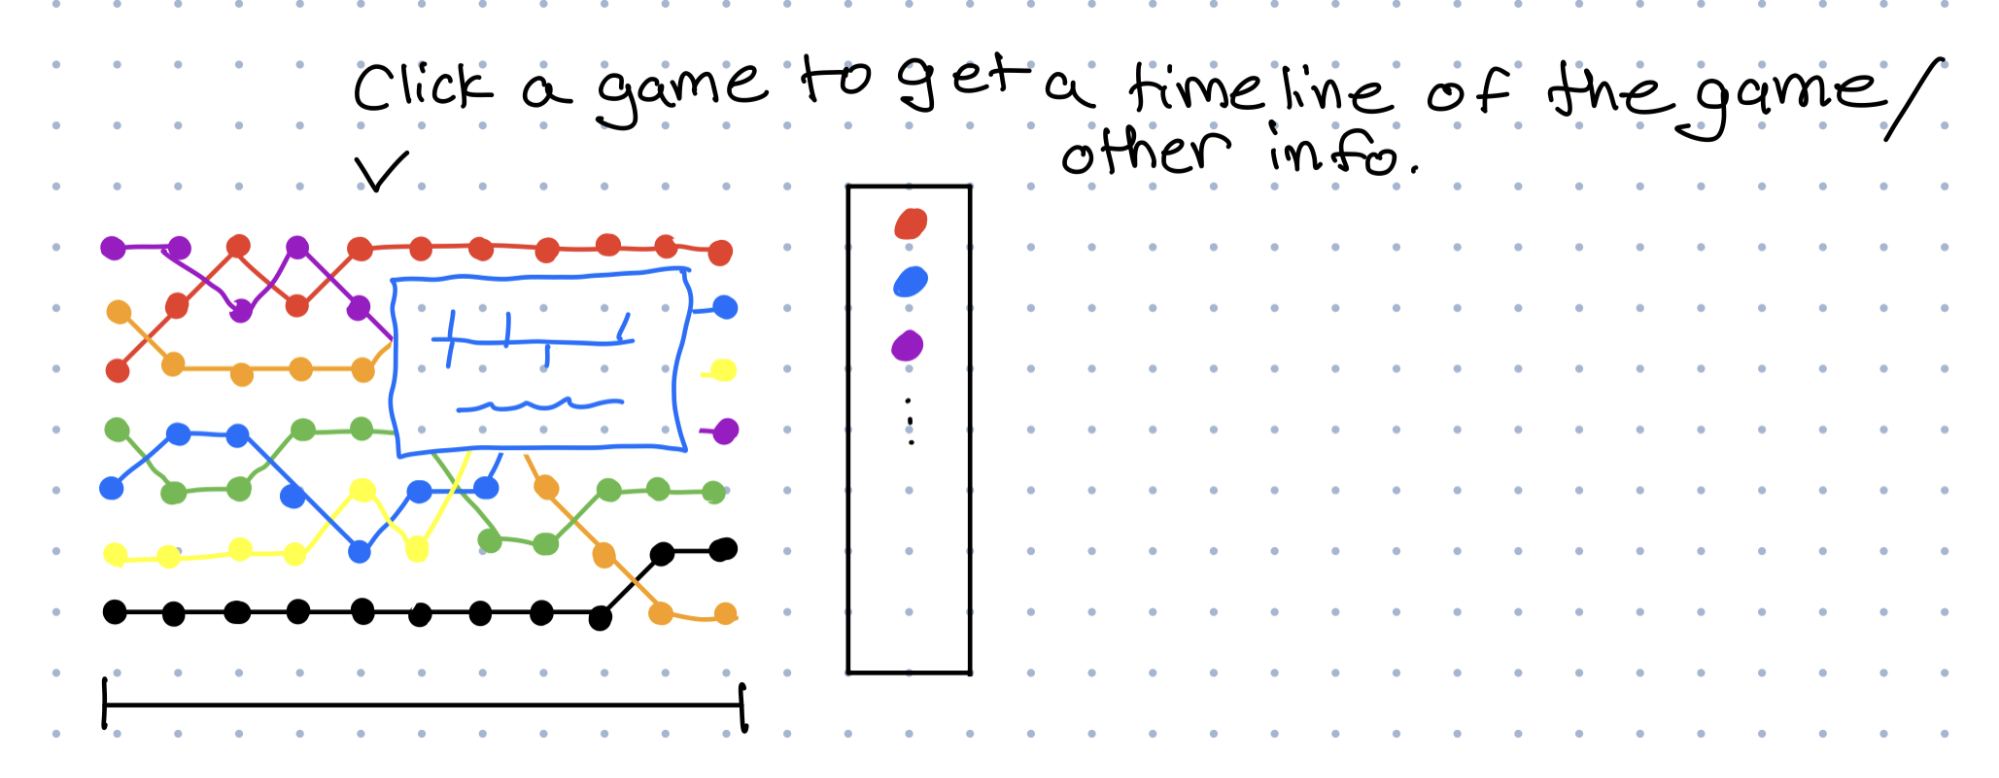 Click a game to get a timeline of the game/
other info.